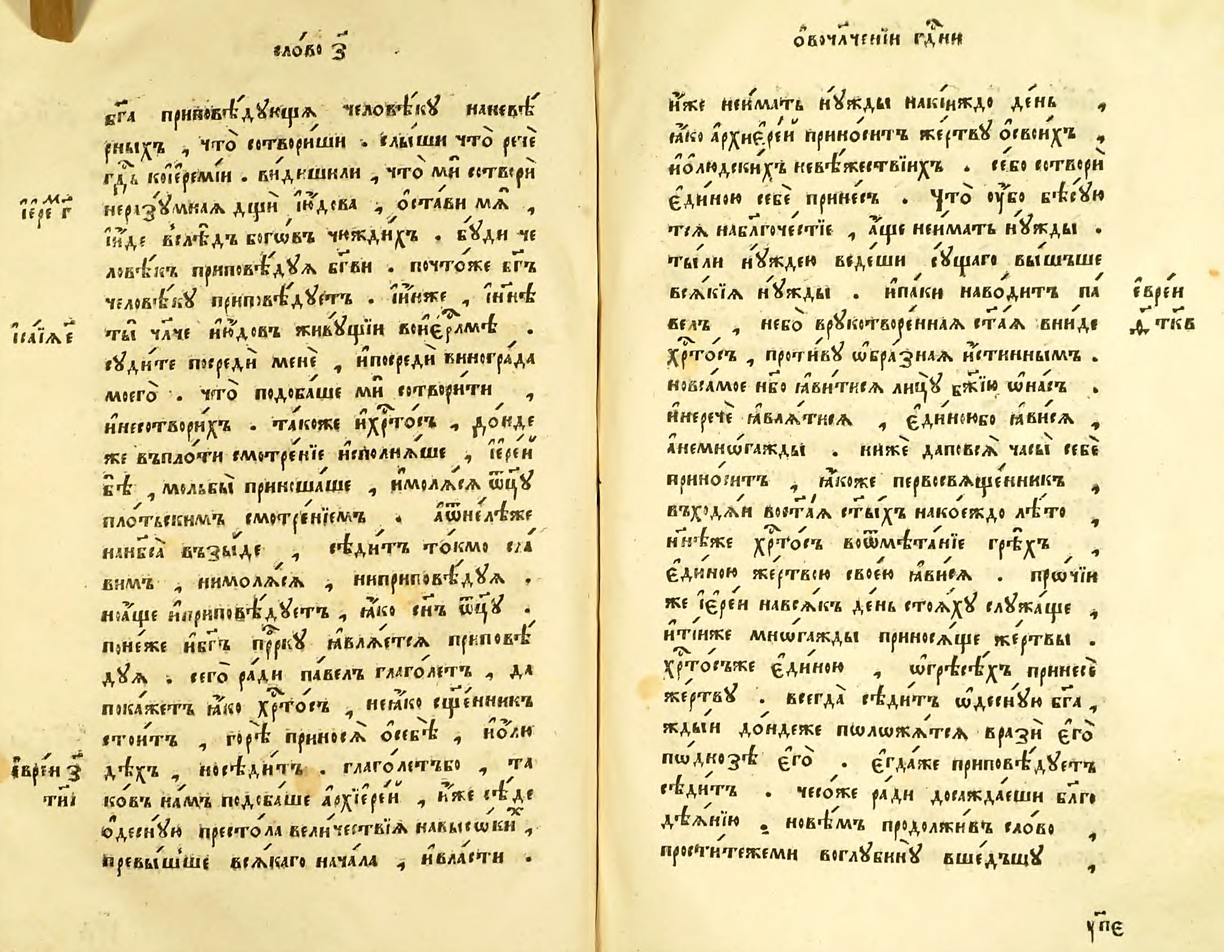 сло́во з҃
бг҃а приповѣ́дꙋющꙗ человѣ́кꙋ наневѣ́
рныхъ , что̀ сотвори́ши . слы́ши что̀ речѐ
гд҇ь коіеремі́и . ви́дишили , что̀ мѝ сотворѝ
неразꙋ́мнаꙗ дщѝ їю́дова , ѡ҆ста́ви мѧ̀ ,
їере г҃
їи҆́де вслѣ́дъ бого́въ чюжди́хъ . бꙋ́ди че
ловѣ́къ приповѣ́дꙋꙗ бг҃ви . почто́же бг҃ъ
человѣ́кꙋ приповѣ́дꙋетъ . и҆ни́же , и҆нн҃ѣ
ты̀ чл҃че ию́довъ живꙋ́щїи воїер҇лмѣ .
їса́їѧ є҃
сꙋди́те посредѝ менѐ , ипосредѝ виногра́да
моего̀ . что̀ подоба́ше мѝ сотвори́ти ,
инесотвори́хъ . та́коже ихр҇то́съ , до́нде
же въпло́ти смотре́нїе исполнѧ́ше , їере́й
бѣ̀ , мольбы̀ приноша́ше , имолѧ́сѧ ѿц҃ꙋ
пло́тьскимъ смотре́нїемъ . аѿне́лѣже
нанб҃са̀ възы́де , сѣди́тъ то́кмо сла́
вимъ , нимолѧ́сѧ , ниприповѣ́дꙋꙗ .
ноа́ще иприповѣ́дꙋетъ , ꙗ҆́ко сн҃ъ ѿц҃ꙋ .
поне́же ибг҃ъ пр҇ркꙋ ꙗвлѧ́етсѧ приповѣ́
дꙋꙗ . сего̀ ра́ди па́велъ глаго́летъ , да
пока́жетъ ꙗ҆́ко хр҇то́съ , неꙗ́ко сщ҃е́нникъ
стои́тъ , го́рѣ приносѧ̀ ѡ҆себѣ̀ , иѡ҆лю
дѣ́хъ , носѣди́тъ . глаго́летъбо , та
евре́и з҃
ти҃і
ко́въ на́мъ подоба́ше архїере́й , и҆́же сѣ́де
ѡ҆деснꙋ́ю престо́ла вели́чествїꙗ навысо́ких ,
превы́шше всѧ́каго нача́ла , ивла́сти .
ѡ҆вочл҃че́нїи гд҇ни
и҆́же неи́мать нꙋ́жды накі́иждо де́нь ,
ꙗ҆́ко архиере́й прино́ситъ же́ртвꙋ ѡ҆свои́хъ ,
иѡ҆людски́хъ невѣ́жествїихъ . се́бо сотворѝ
еди́ною себѐ прине́съ . Что̀ ꙋ҆́бо бѣсꙋ́ю
тсѧ набл҃гоче́стїе , а҆́ще неи́мать нꙋ́жды .
ты́ли нꙋ́ждею веде́ши сꙋ́щаго вы́шъше
всѧ́кїѧ нꙋ́жды . ипа́ки наво́дитъ па́
велъ , небо̀ врꙋкотворе́ннаꙗ ст҃а́ꙗ вни́де
евре́и
д҃ ткв
хр҇то́съ , проти́вꙋ ѡ҆бра́знаꙗ и҆́стиннымъ .
новса́мое нб҃о ꙗви́тисѧ лицꙋ̀ бж҃їю ѡ҆на́съ .
инеречѐ ꙗвлѧ́тисѧ , еди́ноюбо ꙗви́сѧ ,
анемно́гажды . нижѐ даповсѧ̀ часы̀ себѐ
прино́ситъ , ꙗ҆́коже первосвѧще́нникъ ,
въходѧ́и востаѧ ст҃ы́хъ нако́еждо лѣ́то ,
нн҃ѣже хр҇то́съ воѿмѣта́нїе грѣ́хъ ,
еди́ною же́ртвою свое́ю ꙗви́сѧ . про́чїи
же їере́и навсѧ́къ де́нь стоѧ́хꙋ слꙋжа́ще ,
иті́иже мно́гажды приносѧ́ще же́ртвы .
хр҇то́съже еди́ною , ѡ҆грѣсѣ́хъ принесѐ
же́ртвꙋ . всегда̀ сѣди́тъ ѡ҆деснꙋ́ю бг҃а ,
жды́и до́ндеже положа́тсѧ вразѝ его̀
подно́зѣ его̀ . егда́же приповѣ́дꙋетъ
сѣди́тъ . чесо́же ра́ди досажда́еши бл҃го
дѣѧ́нїю . новѣ́мъ продолжи́въ сло́во ,
прости́тежеми воглꙋбинꙋ̀ вше́дъщꙋ ,
ꙋ҃пе